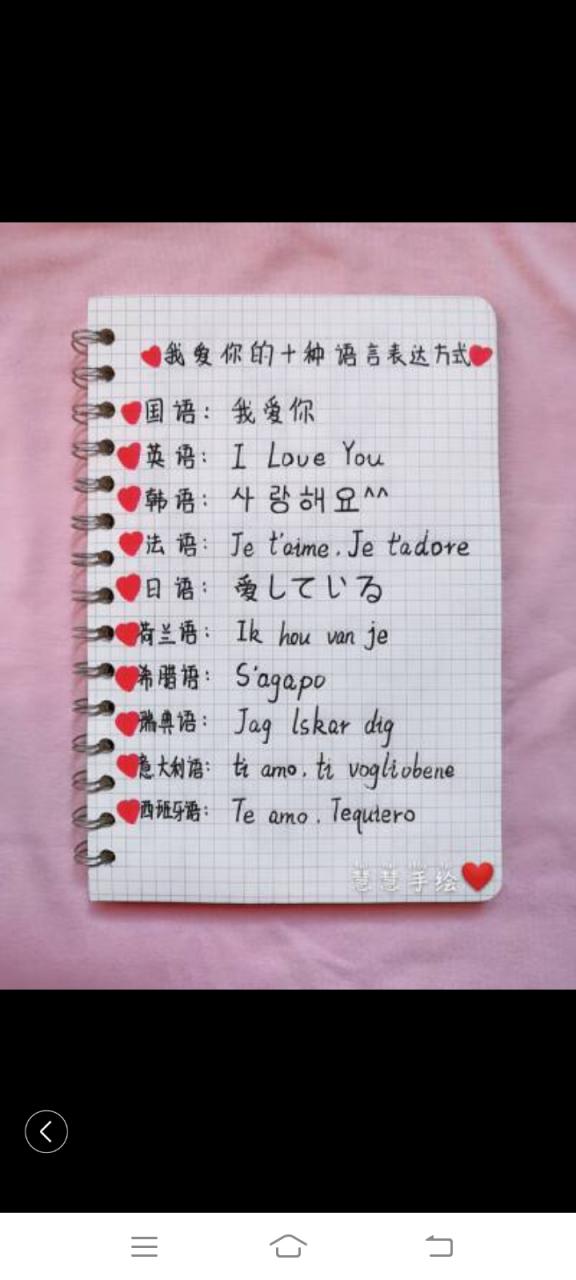 我爱你的十种语言表达方式
国语：我爱你
英语：I Love You
韩语：사랑해요^^
法语：Je t'aime. Je t'adore
日语：愛している
荷兰语：Ik hou van je
希腊语：S'agapo
瑞典语：Jag lskar dig
意大利语：ti amo. ti vogliobene
西班牙语：Te amo. Tequiero
慧慧手绘